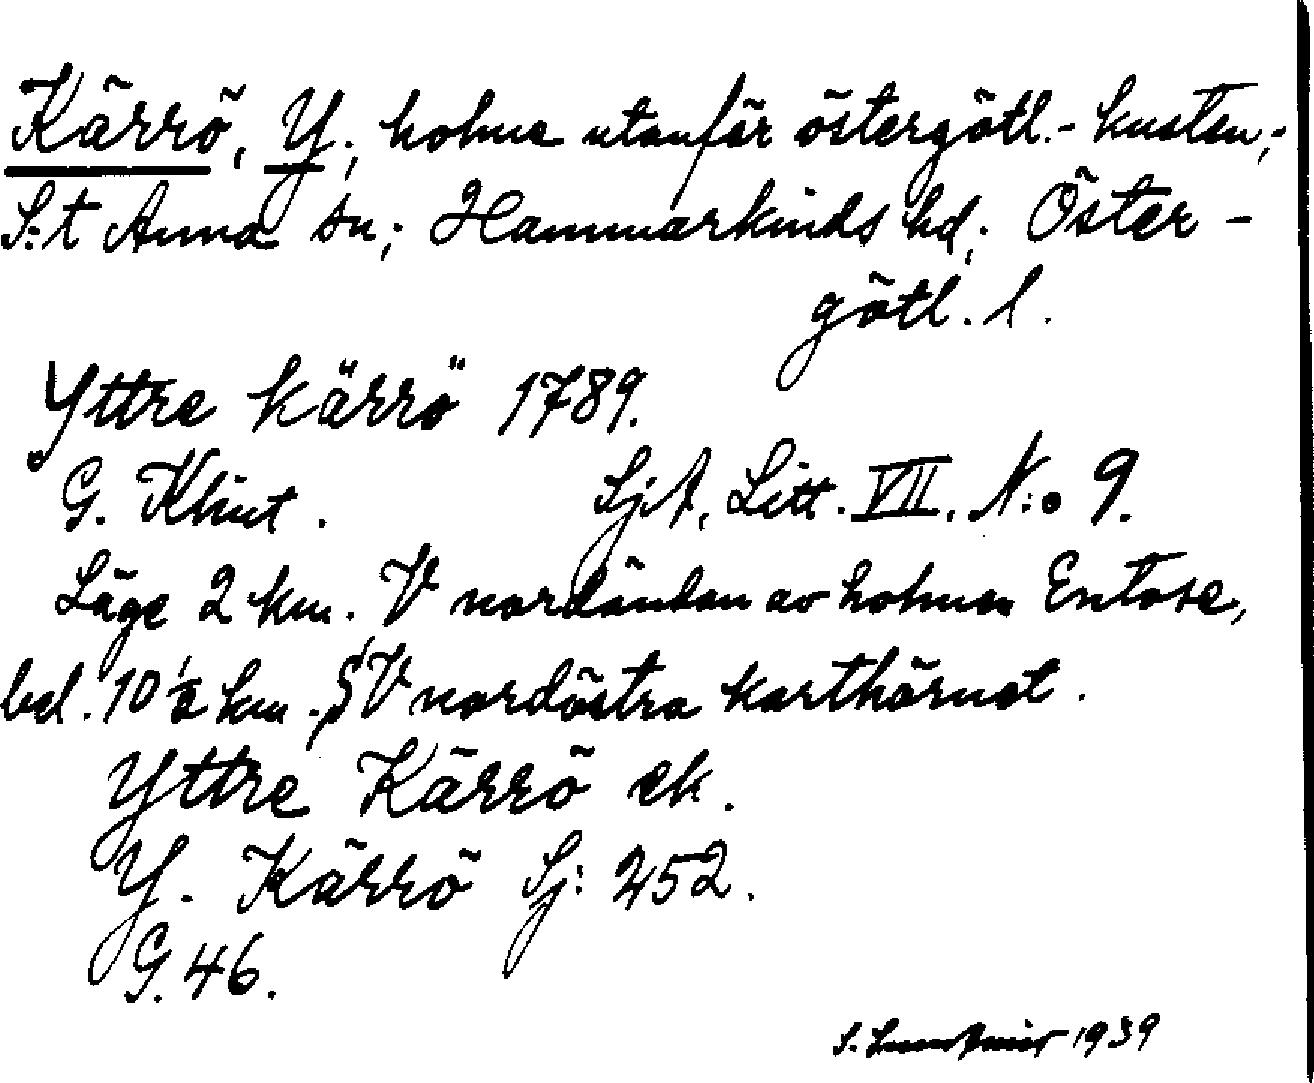 Kärrö, Y.; holme utanför östergötl.-kusten;-
S:t Anna sn; Hammarkinds hd; Öster-
götl. l.
Yttre kärrö 1789.
G. Klint. SjA, Litt. VII. N:o 9.
Läge 2 km. V nordändan av holmen Entose,
bel. 10 1/2 km. SV nordöstra karthörnet.
Yttre Kärrö ek.
Y. Kärrö Sj: 252.
G. 46.
S. 1939